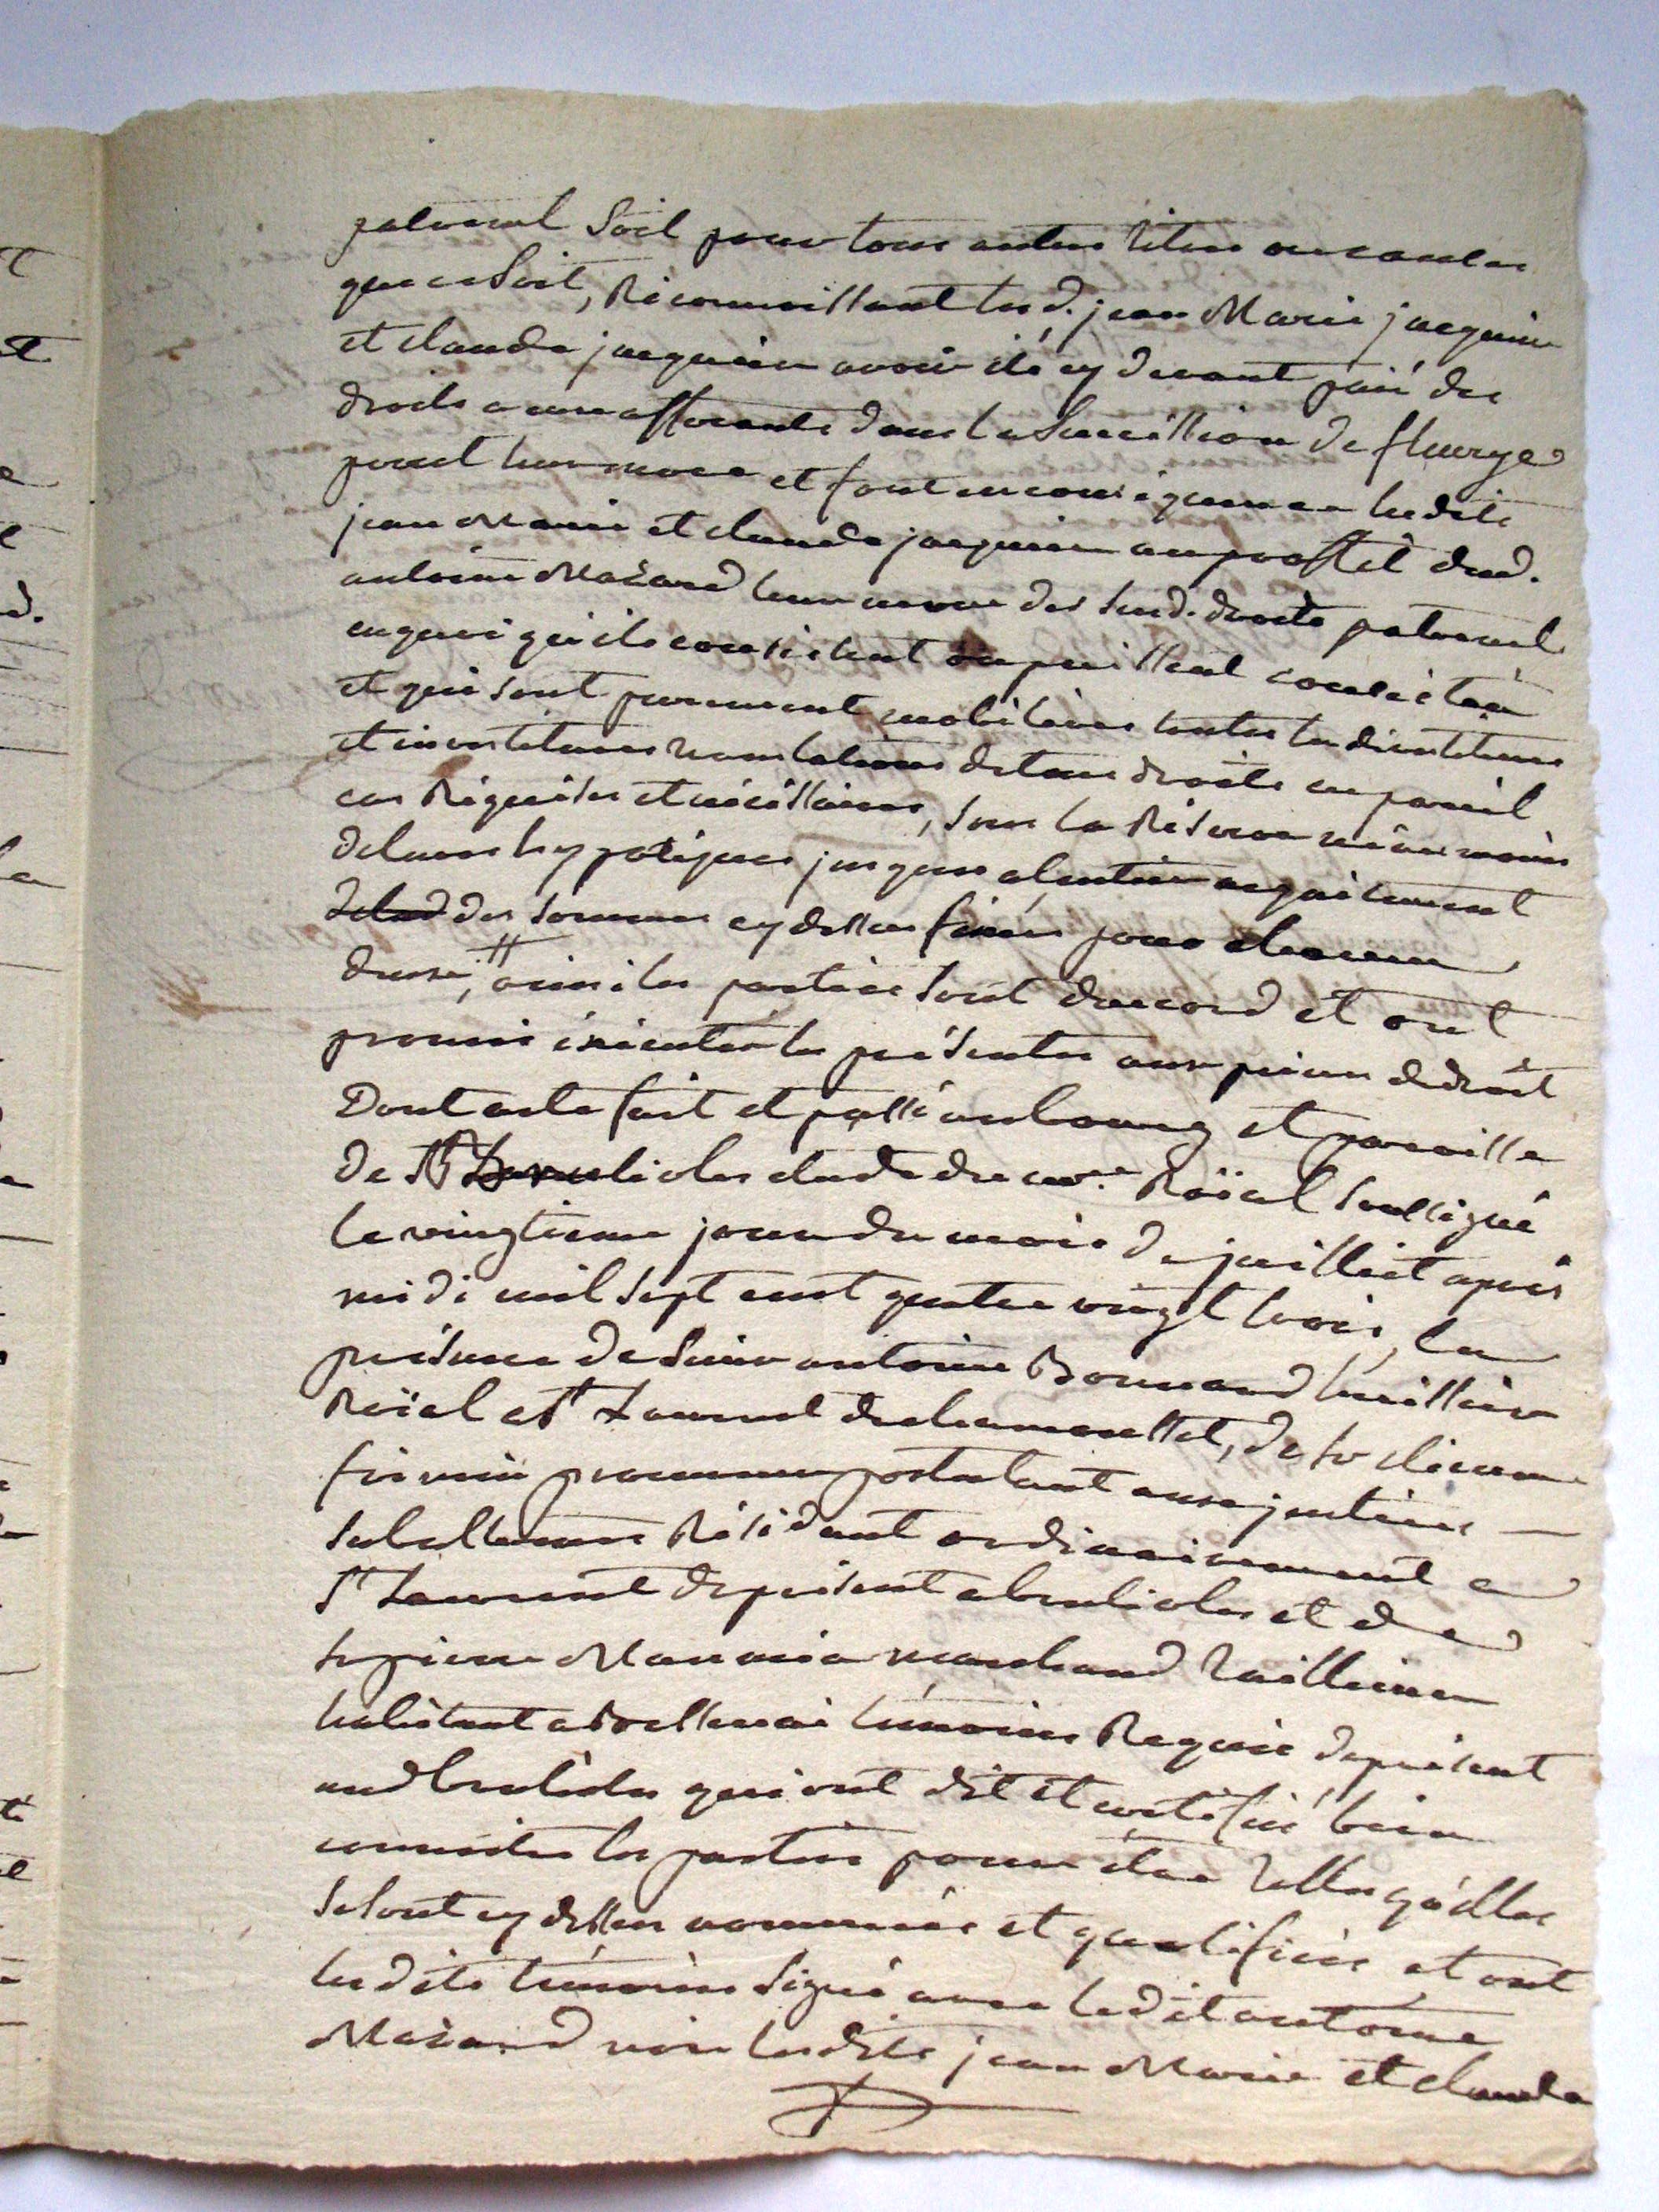 paternel Soit pour tous autres titres ou causes
que ce Soit, Reconnoissant lesd. jean Marie jacquin
et claude jacquin avoir été cy devant païé des
droits a eux afferants dans la Succession de
leur mere et font en consequence lesdits
jean Marie et claude jacquin au proffit dud.
antoine Mazard leur des susd. droits paternel
en quoi qu'ils consistent ou puissent consister
et qui sont purement mobiliaires toutes les divestitures
et investitures translations de tous droits en pareil
cas Requises et nécéssaires, sous la Réserve néanmoins
de leurs hypotêques jusques a l'entier acquitement
des sommes cy dessus fixées pour chacun
deux, ainsi les parties sont daccord et ont
promis éxécuter les présentes aux peines de droit
Dont acte fait et passé au bourg et paroisse
de Brulioles etude du no.re Roïal soussigné
le vingtieme jour du mois de juilliet après
midi mil sept cent quatre vingt trois, En
présence de Sieur antoine Bonnard huissier
Roïal a St Laurent de chamousset, de sr
procureur postulant aux justices
subalternes Résidant ordinairement a
St Laurent de présent a brulioles et de
sr pierre marchand tailleur
habitant a témoins Requis de présent
aud brulioles qui ont dit et certifié bien
connoitre les parties pour être telles qu'elles
se sont cy dessus nommées et qualifiées et ont
lesdits témoins signé avec ledit antoine
Mazard non lesdits jean Marie et claude